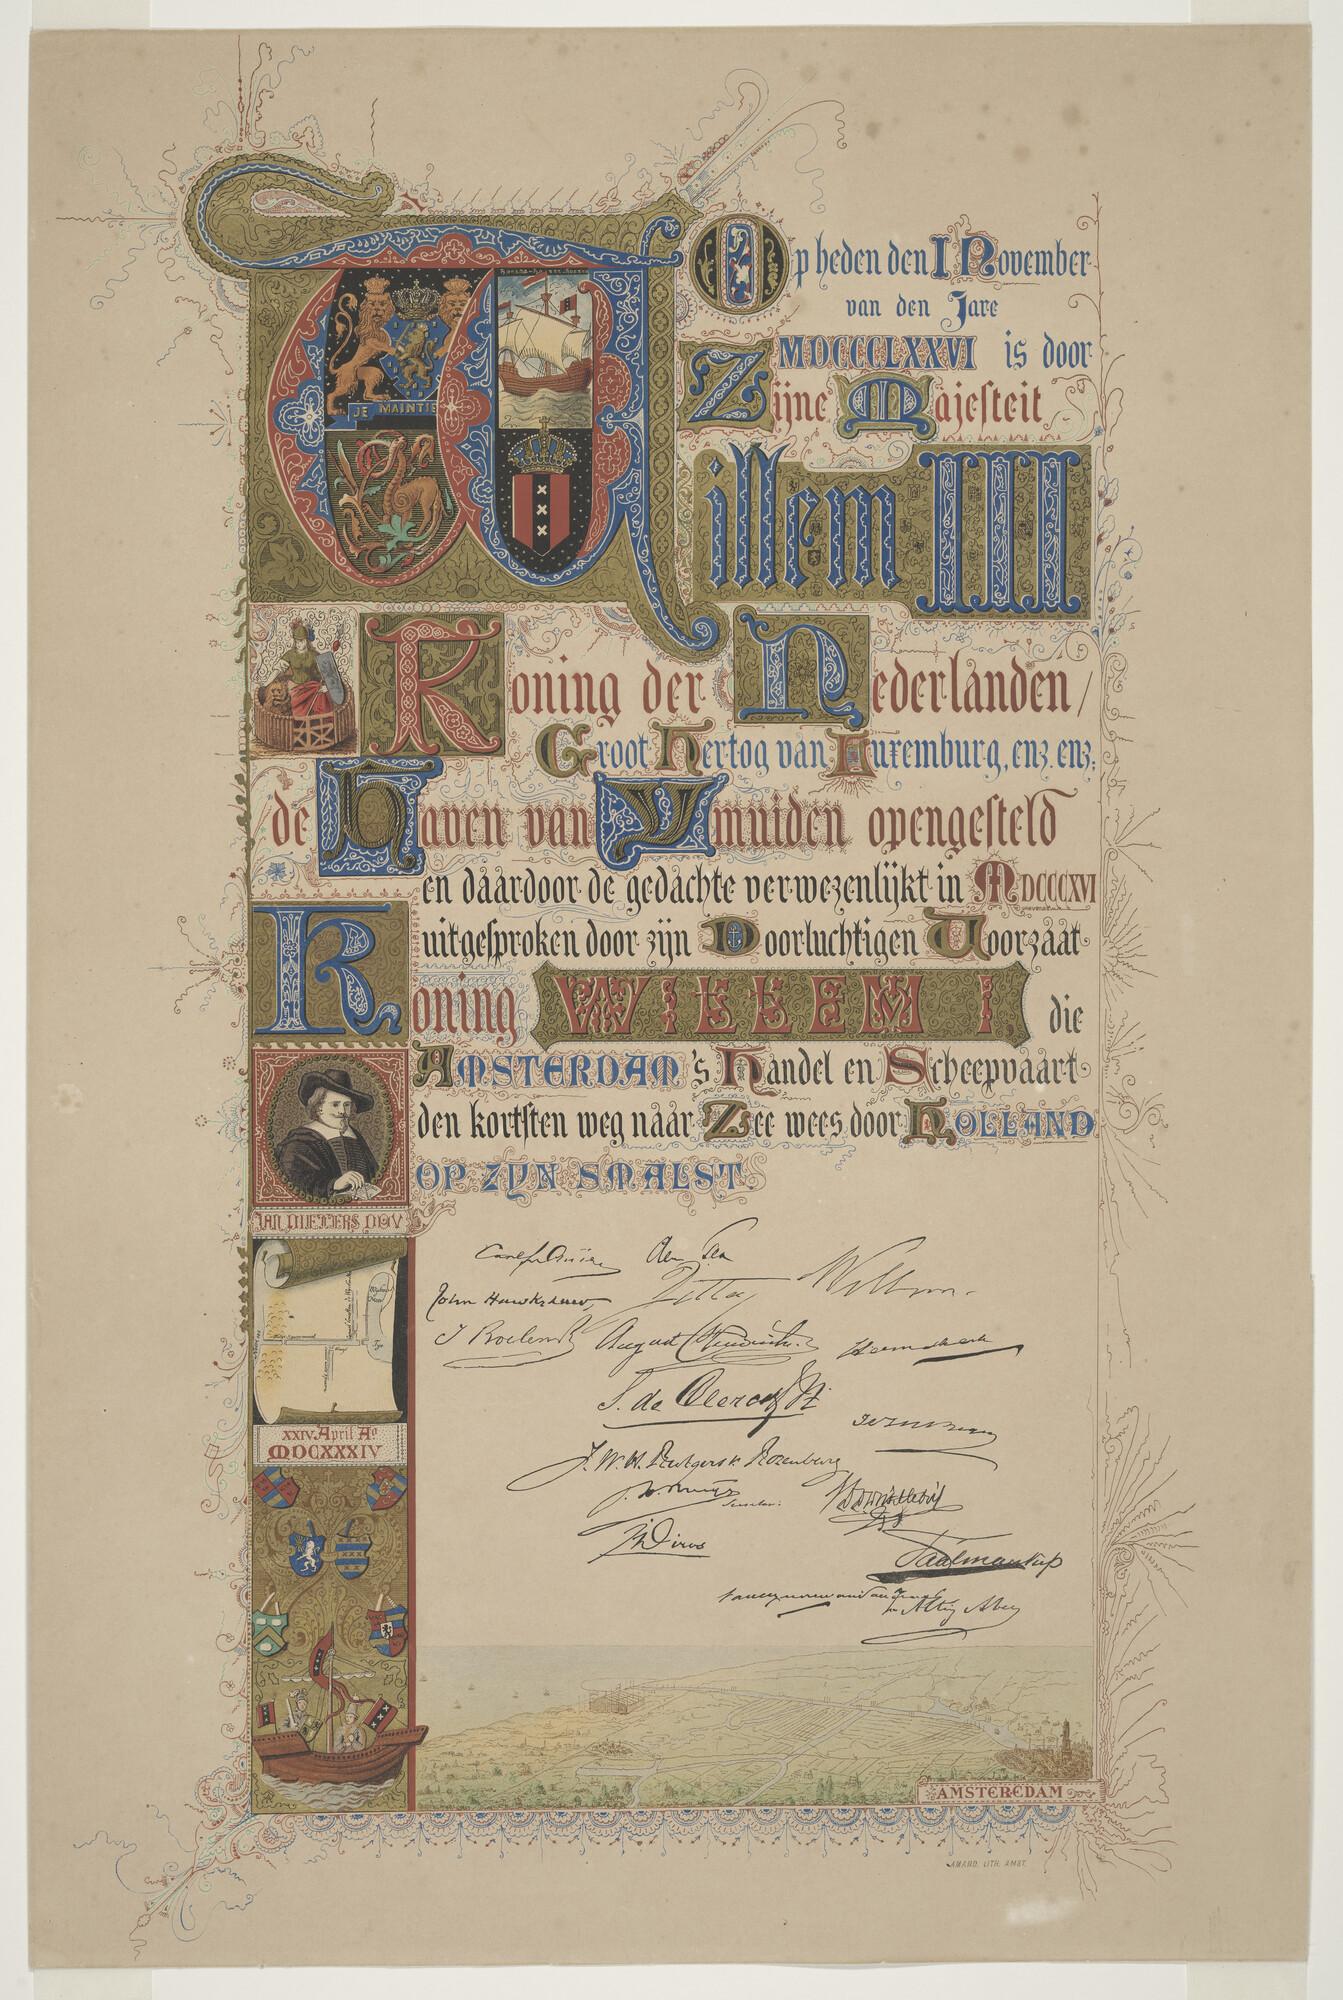 Op heden den I November
van den Jare
MDCCCLXXVI is door
Zijne Majesteit
Willem III
Koning der Nederlanden /
Groot Hertog van Luxemburg, enz. enz:
de Haven van Ymuiden opengesteld
en daardoor de gedachte verwezenlijkt in MDCCCXVI
uitgesproken door zijn Doorluchtigen Voorzaat
Koning WILLEM I, die
AMSTERDAM's Handel en Scheepvaart
den kortsten weg naar Zee wees door HOLLAND
OP ZYN SMALST.
JE MAINTIE
JAN PIETERS DOV
XXIV April Ao
MDCXXXIV
John Hawkshaw
S. de Clercq
J. W. H. Rutgers v. Rozenburg
J Dirks
Taalman Kip
AMSTEREDAM
AMAND. LITH. AMST.